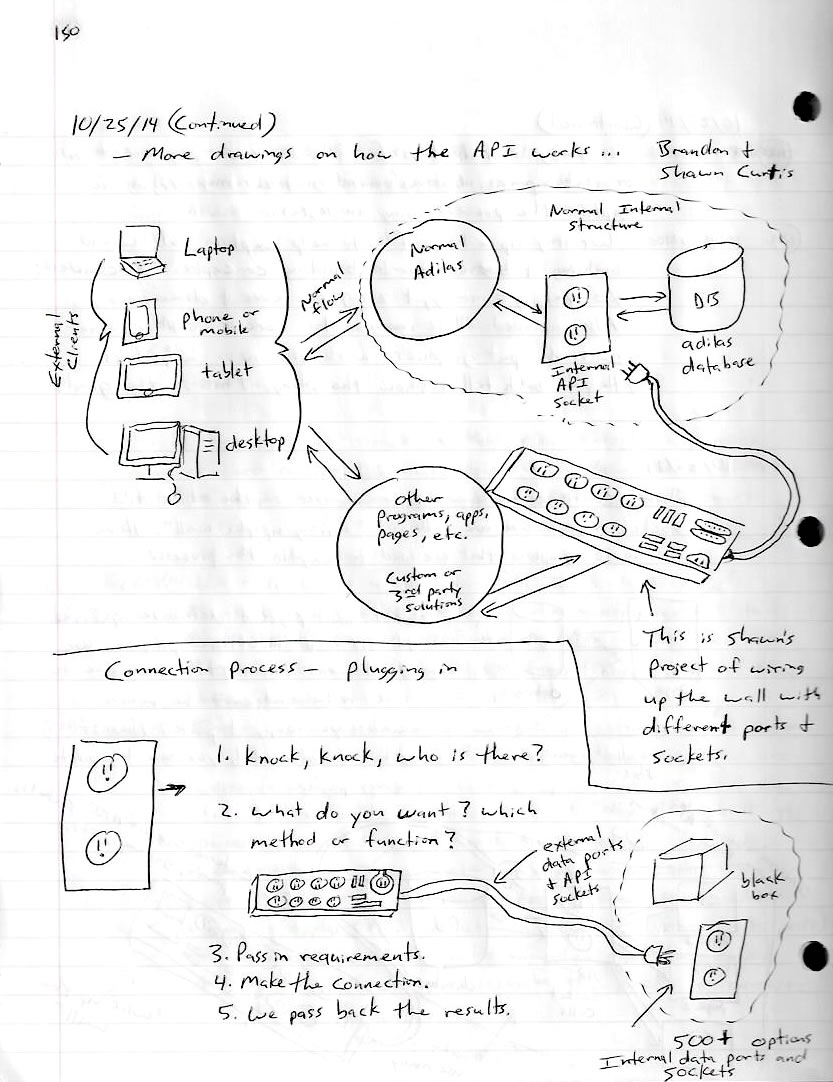 150
10/25/14 (Continued)
— More drawings on how the API works...
Brandon &
Shawn Curtis
External
Clients
Laptop
phone or
mobile
tablet
desktop
Normal
flow
Normal
Adilas
Normal Internal
Structure
Internal
API
Socket
DB
adilas
database
Other
programs, apps,
pages, etc.
Custom or
3rd party
solutions
This is Shawn's
project of wiring
up the wall with
different ports &
sockets.
Connection process — plugging in
1. Knock, knock, who is there?
2. What do you want? which
method or function?
external
data ports
& API
sockets
black
box
3. Pass in requirements.
4. Make the connection.
5. We pass back the results.
500+ options
Internal data ports and
sockets